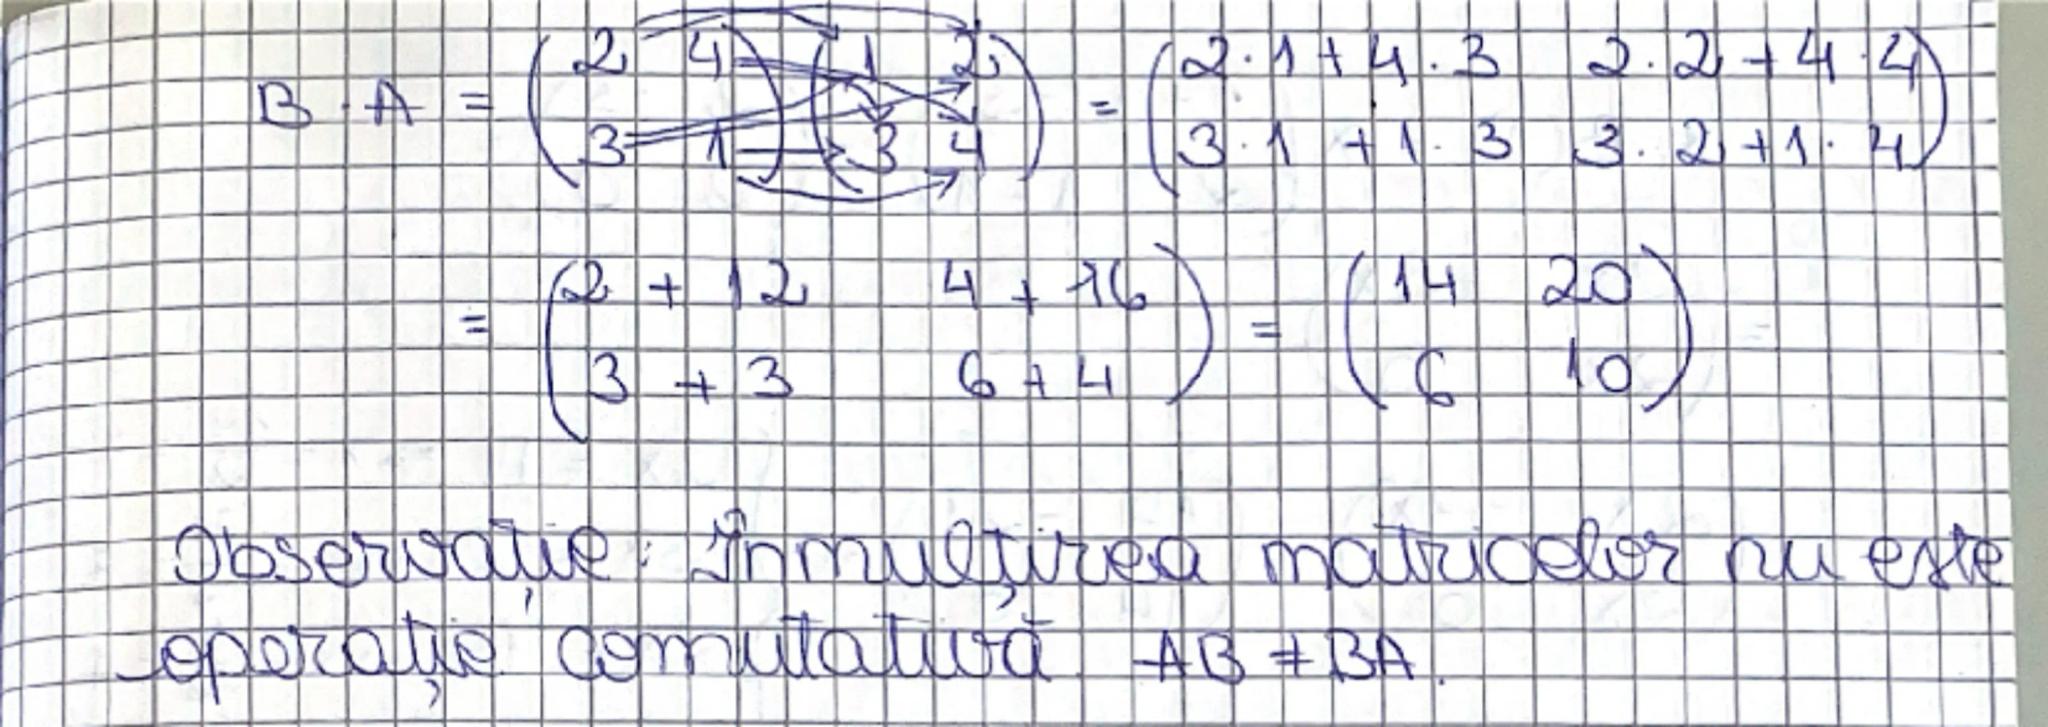 B · A = (2 4 3 1) (1 2 3 4) = (2·1+4·3 2·2+4·4
3·1+1·3 3·2+1·4)
= (2+12 4+16 3+3 6+4) = (14 20 6 10)
Observație: Înmulțirea matricelor nu este
operație comutativă AB ≠ BA.